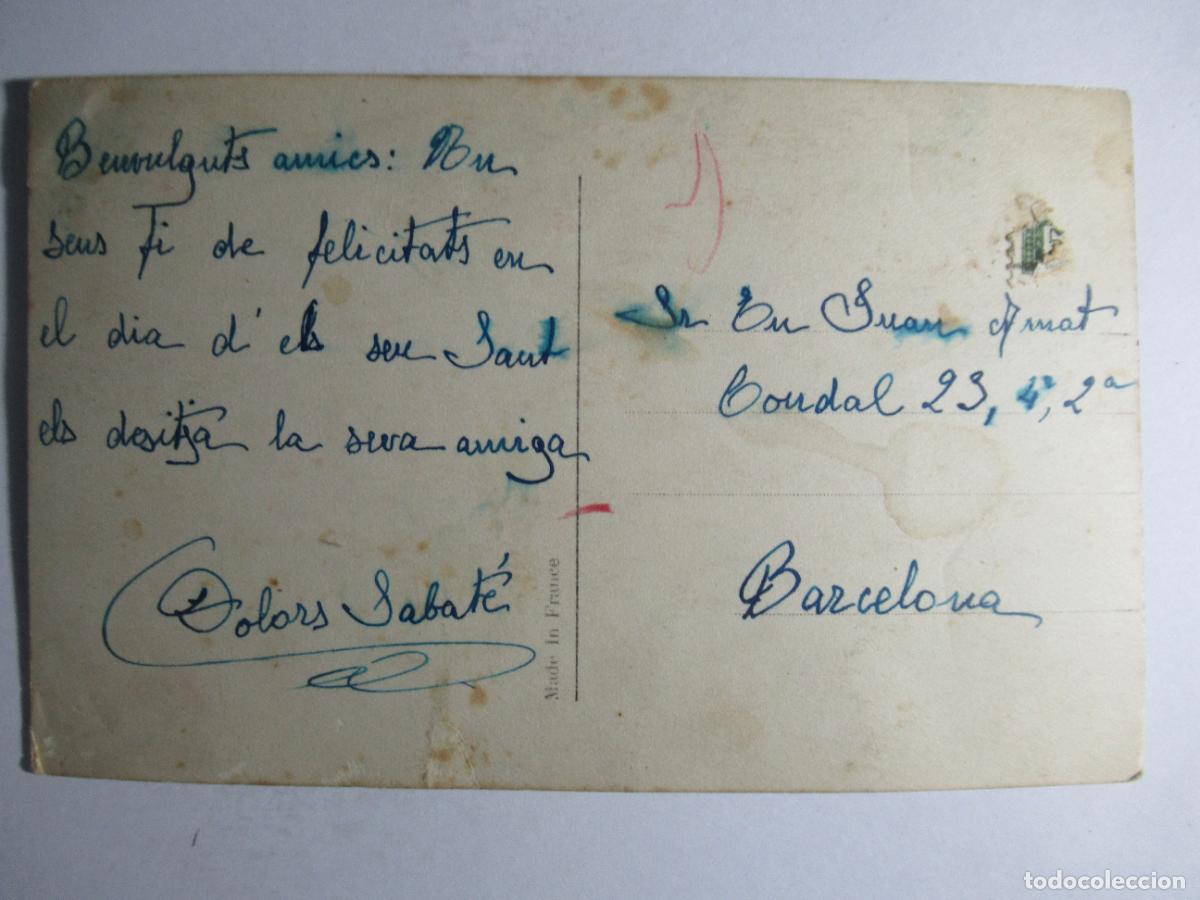 Benvulguts amics: Un
sens fi de felicitats en
el dia d' els seu Sant
els desitja la seva amiga
Dolors Sabaté
Made in France
Sr En Juan Amat
Condal 23, 4º, 2ª
Barcelona
todocoleccion